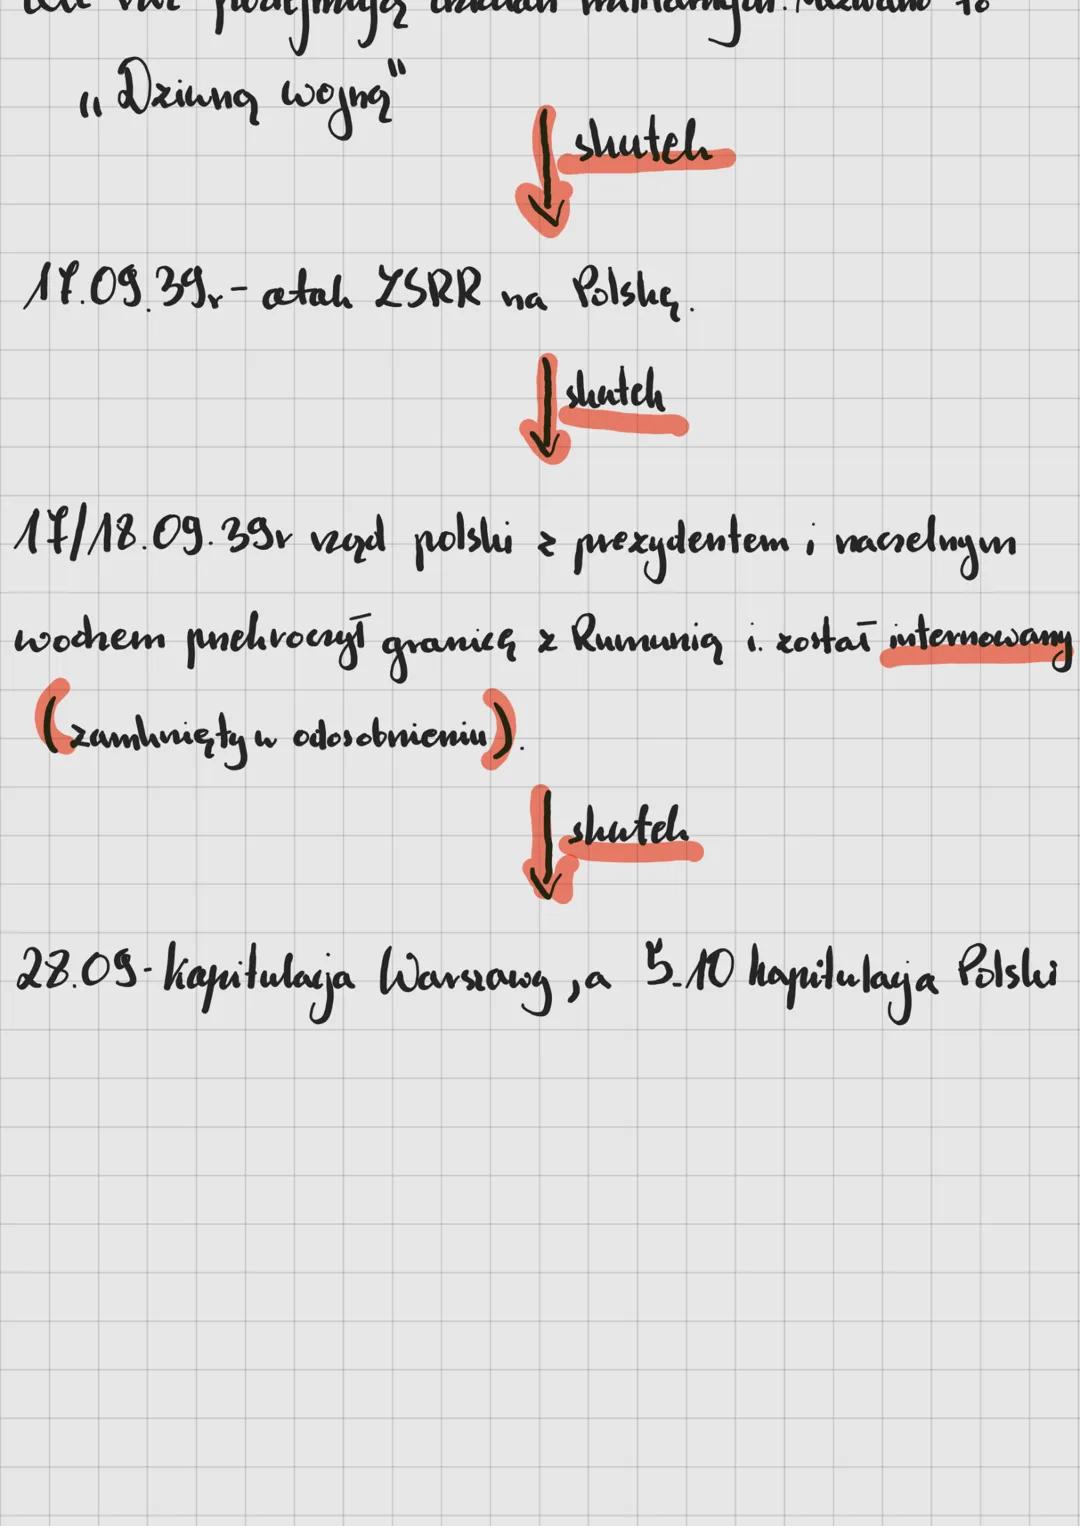 ale nie podejmują działań militarnych. Nazwano to
„Dziwną wojną"
skutek
17.09.39r - atak ZSRR na Polskę.
skutek
17/18.09.39r rząd polski z prezydentem i naczelnym
wodzem przekroczył granicę z Rumunią i. został internowany
(zamknięty w odosobnieniu).
skutek
28.09 - kapitulacja Warszawy, a 5.10 kapitulacja Polski